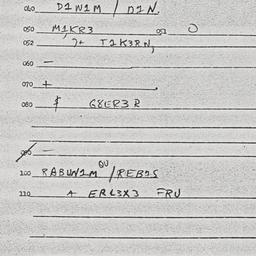 040 D1W1M / D1N.
050 M1KR3 051
052 T1K3RN,
060 —
070 +
080 $ G8ER3R
090
100 RABUW1M OU /REB1S
110 A ERL3X3 FRU